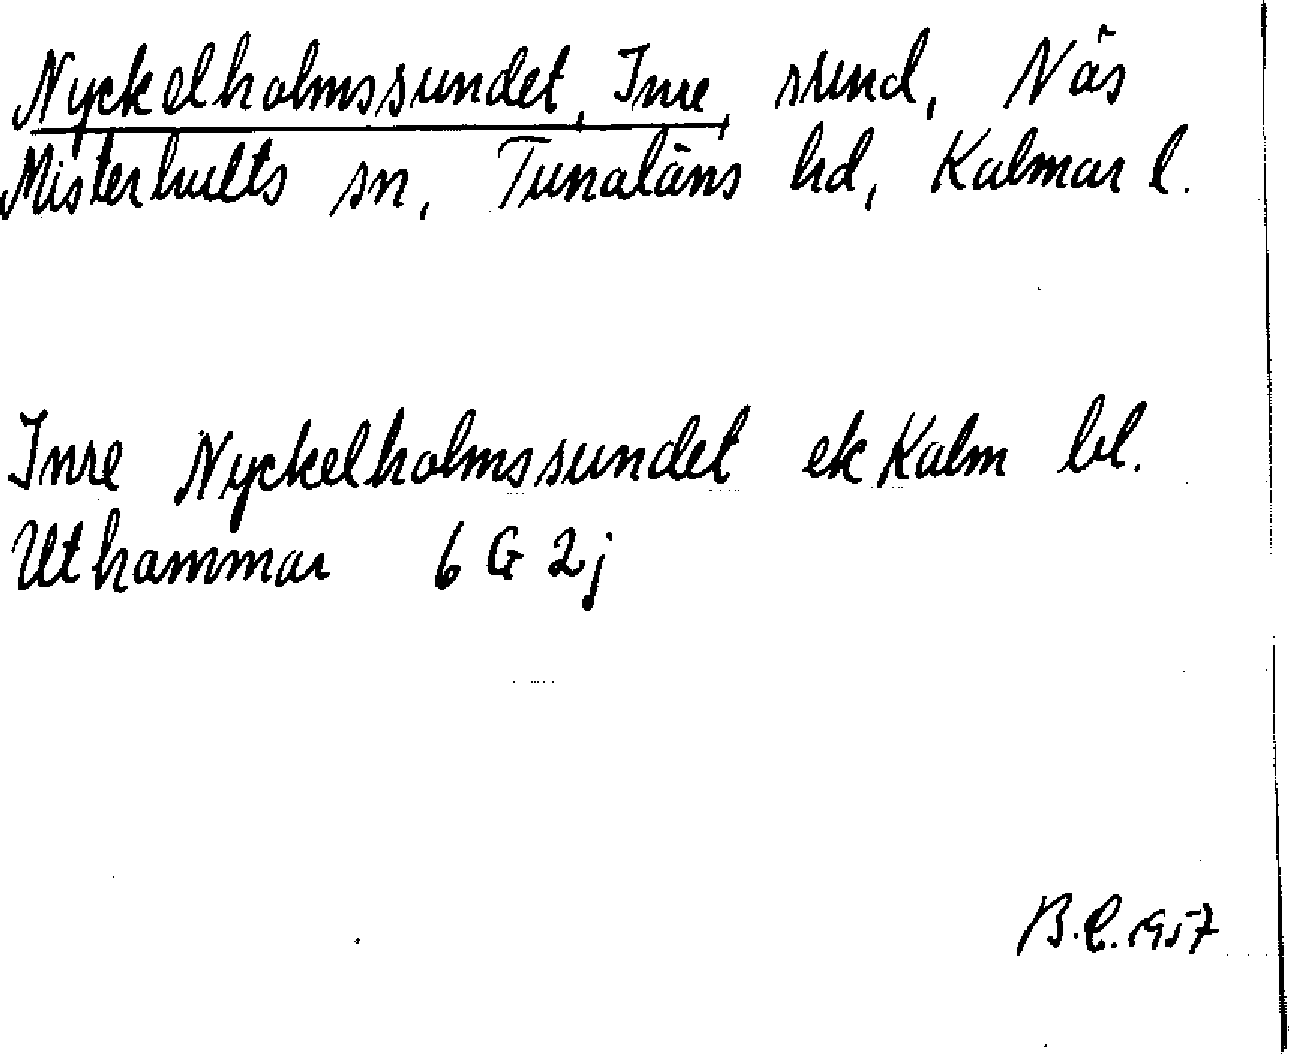 Nyckelholmssundet, Inre, sund, Näs
Misterhults sn, Tunaläns hd, Kalmar l.
Inre Nyckelholmssundet ek Kalm bl.
Uthammar 6 G 2j
B.E. 1957